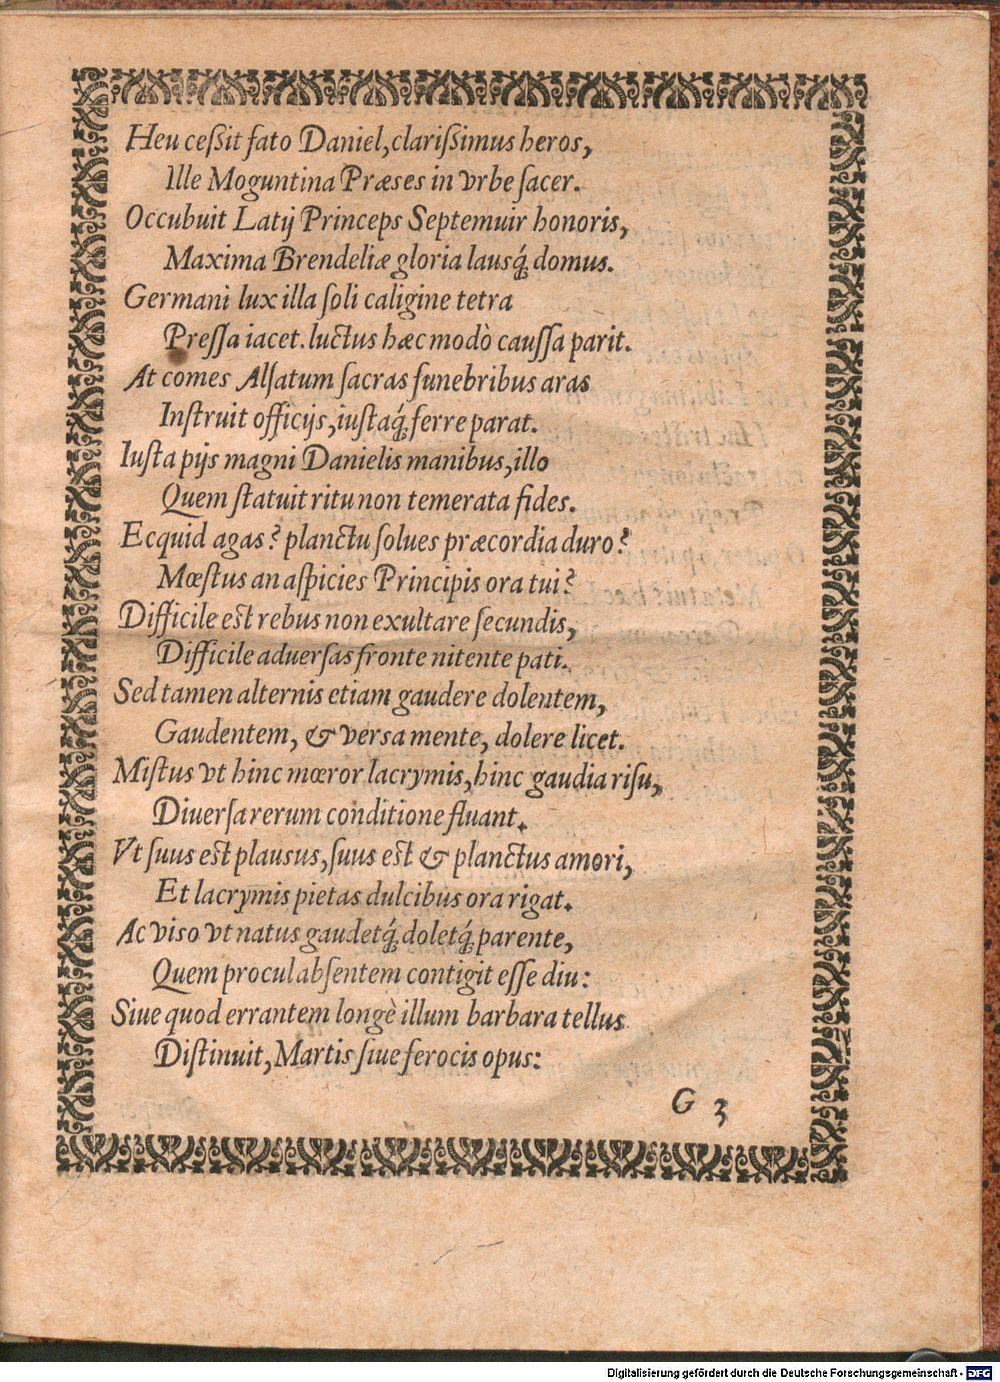 Heu ceſsit fato Daniel, clariſsimus heros,
Ille Moguntina Præses in vrbe ſacer.
Occubuit Latij Princeps Septemuir honoris,
Maxima Brendeliæ gloria lausq́; domus.
Germani lux illa ſoli caligine tetra
Preſſa iacet. luctus hæc modò cauſſa parit.
At comes Alſatum ſacras funebribus aras
Inſtruit officijs, iuſtaq́; ferre parat.
Iuſta pijs magni Danielis manibus, illo
Quem ſtatuit ritu non temerata fides.
Ecquid agas? planctu ſolues præcordia duro?
Mœſtus an aſpicies Principis ora tui?
Difficile eſt rebus non exultare ſecundis,
Difficile aduerſas fronte nitente pati.
Sed tamen alternis etiam gaudere dolentem,
Gaudentem, & verſa mente, dolere licet.
Miſtus vt hinc mœror lacrymis, hinc gaudia riſu,
Diuerſa rerum conditione fluant.
Vt ſuus eſt plausus, ſuus eſt & planctus amori,
Et lacrymis pietas dulcibus ora rigat.
Ac viso vt natus gaudetq́; doletq́; parente,
Quem procul abſentem contigit eſſe diu:
Siue quod errantem longè illum barbara tellus
Diſtinuit, Martis ſiue ferocis opus:
G 3
Digitalisierung gefördert durch die Deutsche Forschungsgemeinschaft - DFG